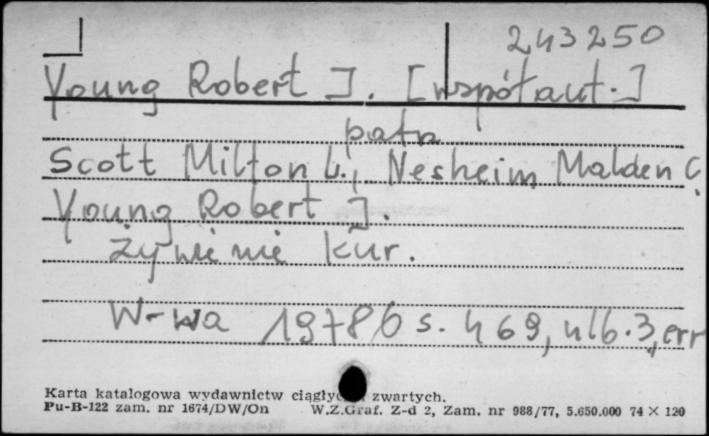 243250
Young Robert J. [współaut.]
patrz
Scott Milton L., Nesheim Malden C.
Young Robert J.
Żywienie kur.
W-wa 1978 s. 469, nlb. 3, err
Karta katalogowa wydawnictw ciągłyc zwartych.
Pu-B-122 zam. nr 1674/DW/On W.Z.Graf. Z-d 2, Zam. nr 988/77, 5.650.000 74 × 120